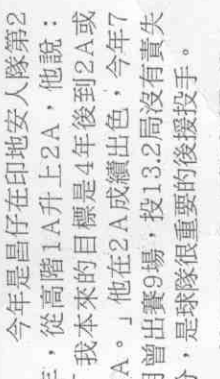 今年是昌仔在印地安人隊第2
,從高階1A升上2A,他說:
我本來的目標是4年後到2A或
A。」他在2A成績出色,今年7
曾出賽9場,投13.2局沒有責失
,是球隊很重要的後援投手。